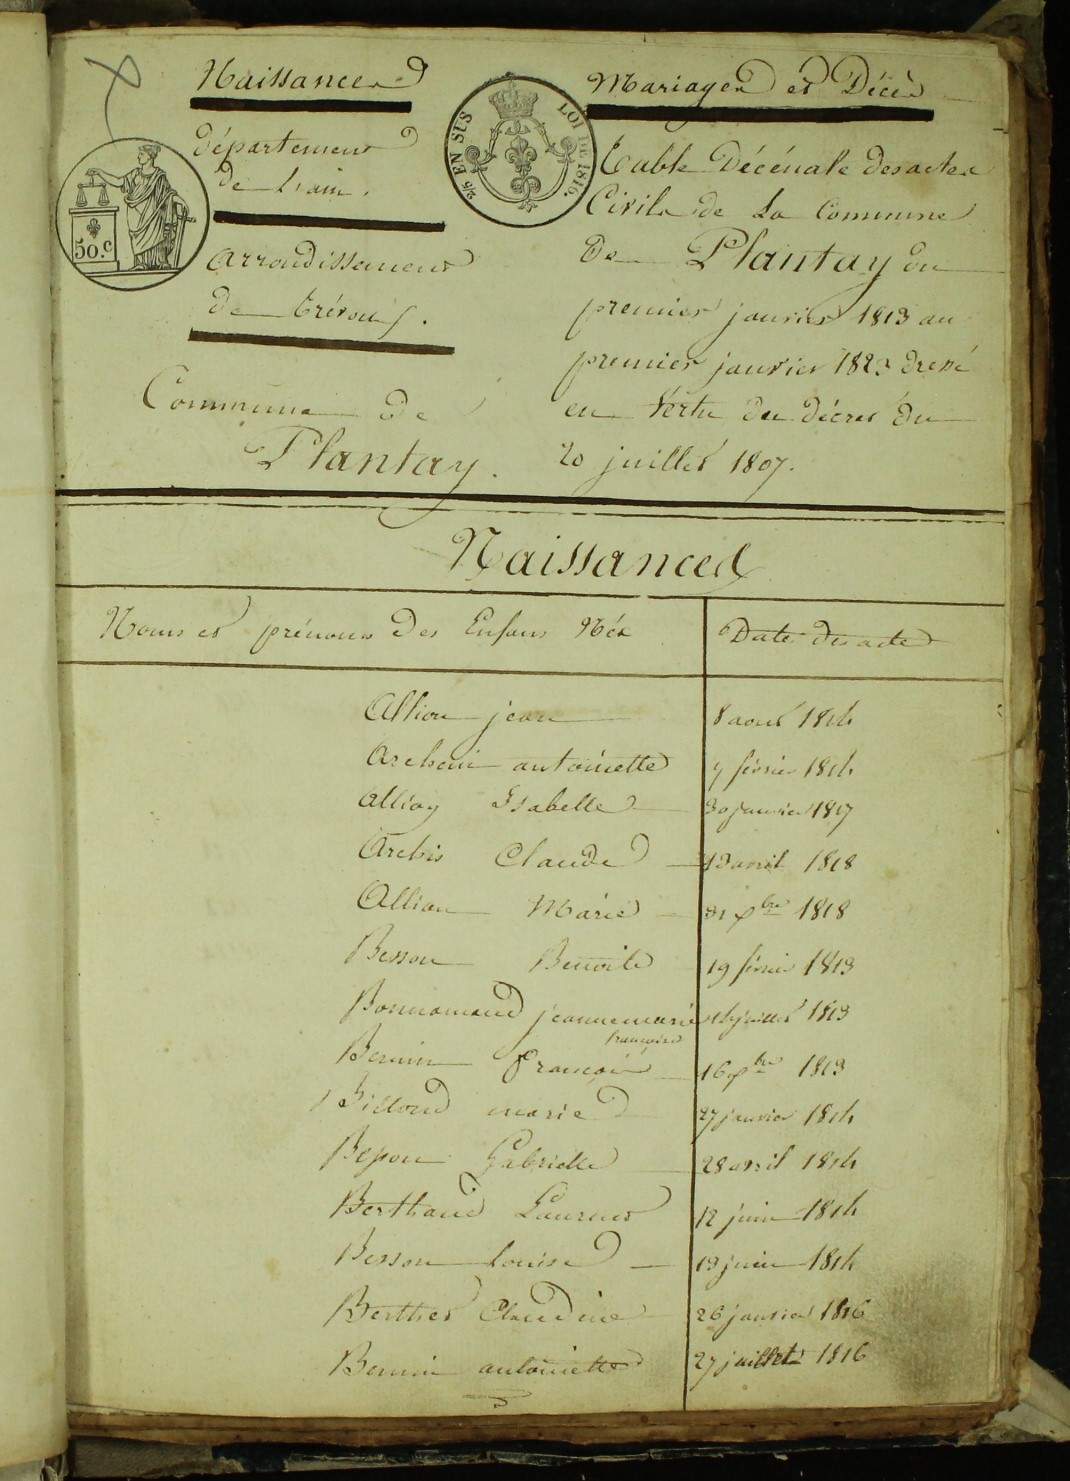 Naissances
département
de L'ain.
arrondissement
de trévoux.
Commune de
Plantay.
50.c
2/5 EN SUS LOI DE 1816.
Mariages et Décès
Table Décénale des actes
Civils de La Commune
de Plantay du
premier janvier 1813 au
premier janvier 1823 dressé
en Vertu du décret du
20 juillet 1807.
Naissances
Noms et prénoms des Enfans Nés Date des actes
Allion jean 8 aout 1814
antoinette février 1814
Isabelle 30 janvier 1817
Archis Claude 13 avril 1818
Marie 31 xbre 1818
Besson Benoite 19 février 1813
Bonnamand jeanne marie 14 juillet 1813
françoise
Bernin François 16 xbre 1813
Billoud marie 27 janvier 1814
Gabrielle 28 avril 1814
Berthaud Laurent 12 juin 1814
Besson Louise 13 juin 1814
Berthet Claudine 26 janvier 1816
Bernin antoinette 27 juillet 1816